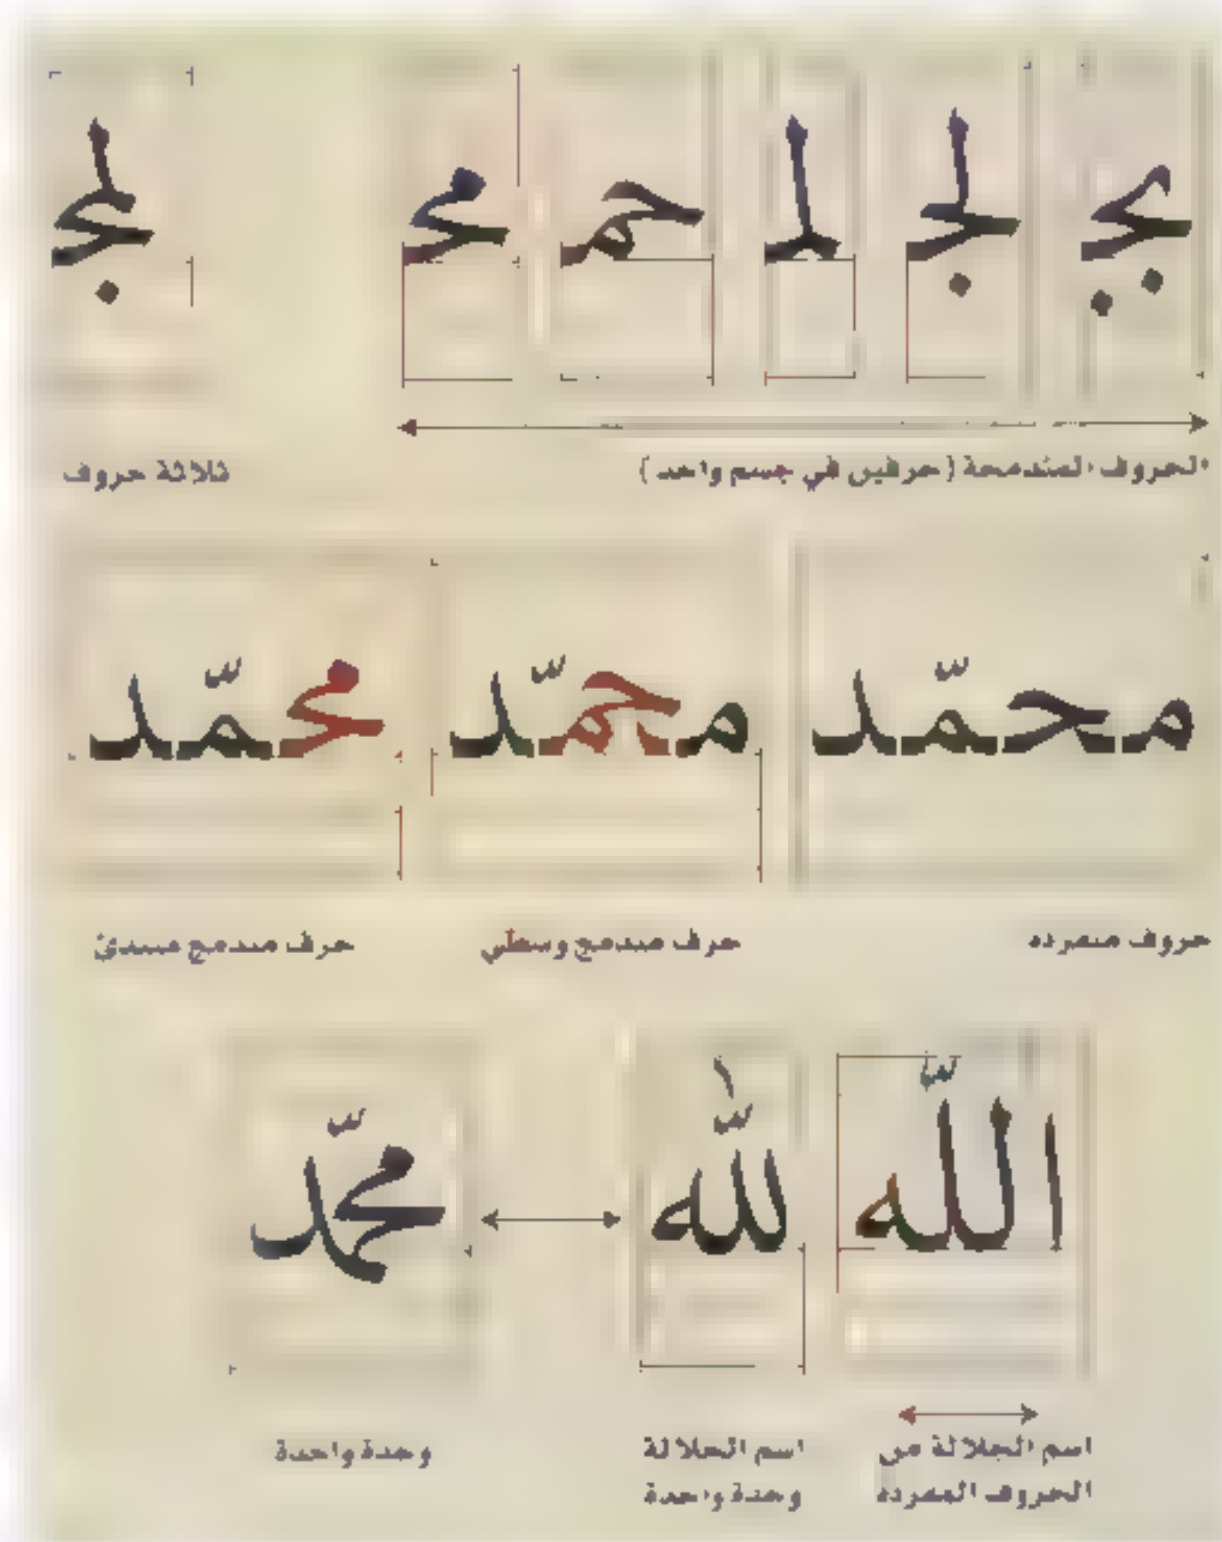 يج لج لم حم مح لمج
الحروف المندمجة (حرفين في جسم واحد)
ثلاثة حروف
محمّد محمّد محمّد
حروف منفردة
حرف مندمج وسطي
حرف مندمج مبتدئ
اللّه للّٰه محمّد
اسم الجلالة من
الحروف المفردة
اسم الجلالة
وحدة واحدة
وحدة واحدة